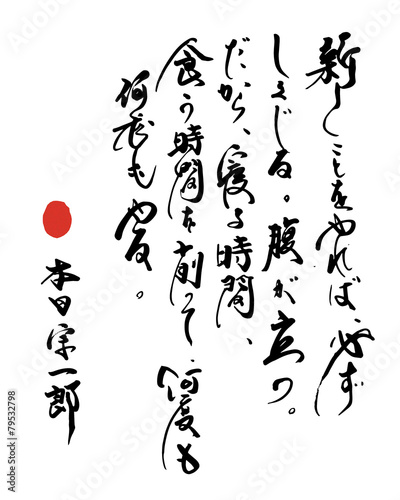 新しいことをやれば、必ず
しくじる。腹が立つ。
だから、寝る時間、
食う時間を削って、何度も
何度もやる。
本田宗一郎
Adobe Stock | #79532798